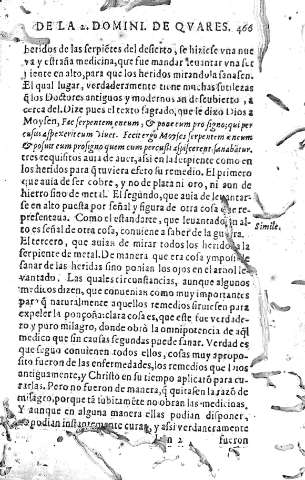 DE LA 2. DOMINI. DE QVARES. 466
heridos de las serpiētes del desierto, se hiziese vna nue
va y estraña medicina, que fue mandar leuantar vna ser
piente en alto, para que los heridos mirandola sanasen.
El qual lugar, verdaderamente tiene muchas sutilezas
q̃ los Doctores antiguos y modernos an descubierto, a
cerca del. Dize pues el texto sagrado, que le dixo Dios a
Moysen, Fac serpentem eneum, & pone eum pro signo, qui per
cusus aspexerit eum viuet. Fecit ergo Moyses serpentem eneum
& posuit eum pro signo quem cum percussi aspicerent sanabātur.
tres requisitos auia de auer, assi en la serpiente como en
los heridos para q̃ tuviera efeto su remedio. El primero
que auia de ser cobre, y no de plata ni oro, ni aun de
hierro sino de metal. El segundo, que auia de leuantar-
se en alto puesta por señal y figura de otra cosa que re-
presentaua. Como el estandarte, que leuantado, in al-
to es señal de otra cosa, conuiene a saber de la guerra.
Simile.
El tercero, que auian de mirar todos los heridos a la
serpiente de metal. De manera que era cosa ymposible
sanar de las heridas sino ponian los ojos en el arbol le
vantado. Las quales circunstancias, aunque algunos
medicos dizen, que conuenian como muy importantes
par q̃ naturalmente aquellos remedios siruiesen para
expeler la ponçoña: clara cosa es, que este fue verdade-
ro y puro milagro, donde obró la omnipotencia de aq̃l
medico que sin causas segundas puede sanar. Verdad es
que segun conuienen todos ellos, cosas muy a propo-
sito fueron de las enfermedades, los remedios que Dios
antiguamente, y Christo en su tiempo aplicaró para cu-
rarlas. Pero no fueron de manera, q̃ quitasen la razõ de
milagro, porque tã subitamēte no obran las medicinas.
Y aunque en alguna manera ellas podian disponer,
no podian instantamente curar, y assi verdaderamente
n 2 fueron